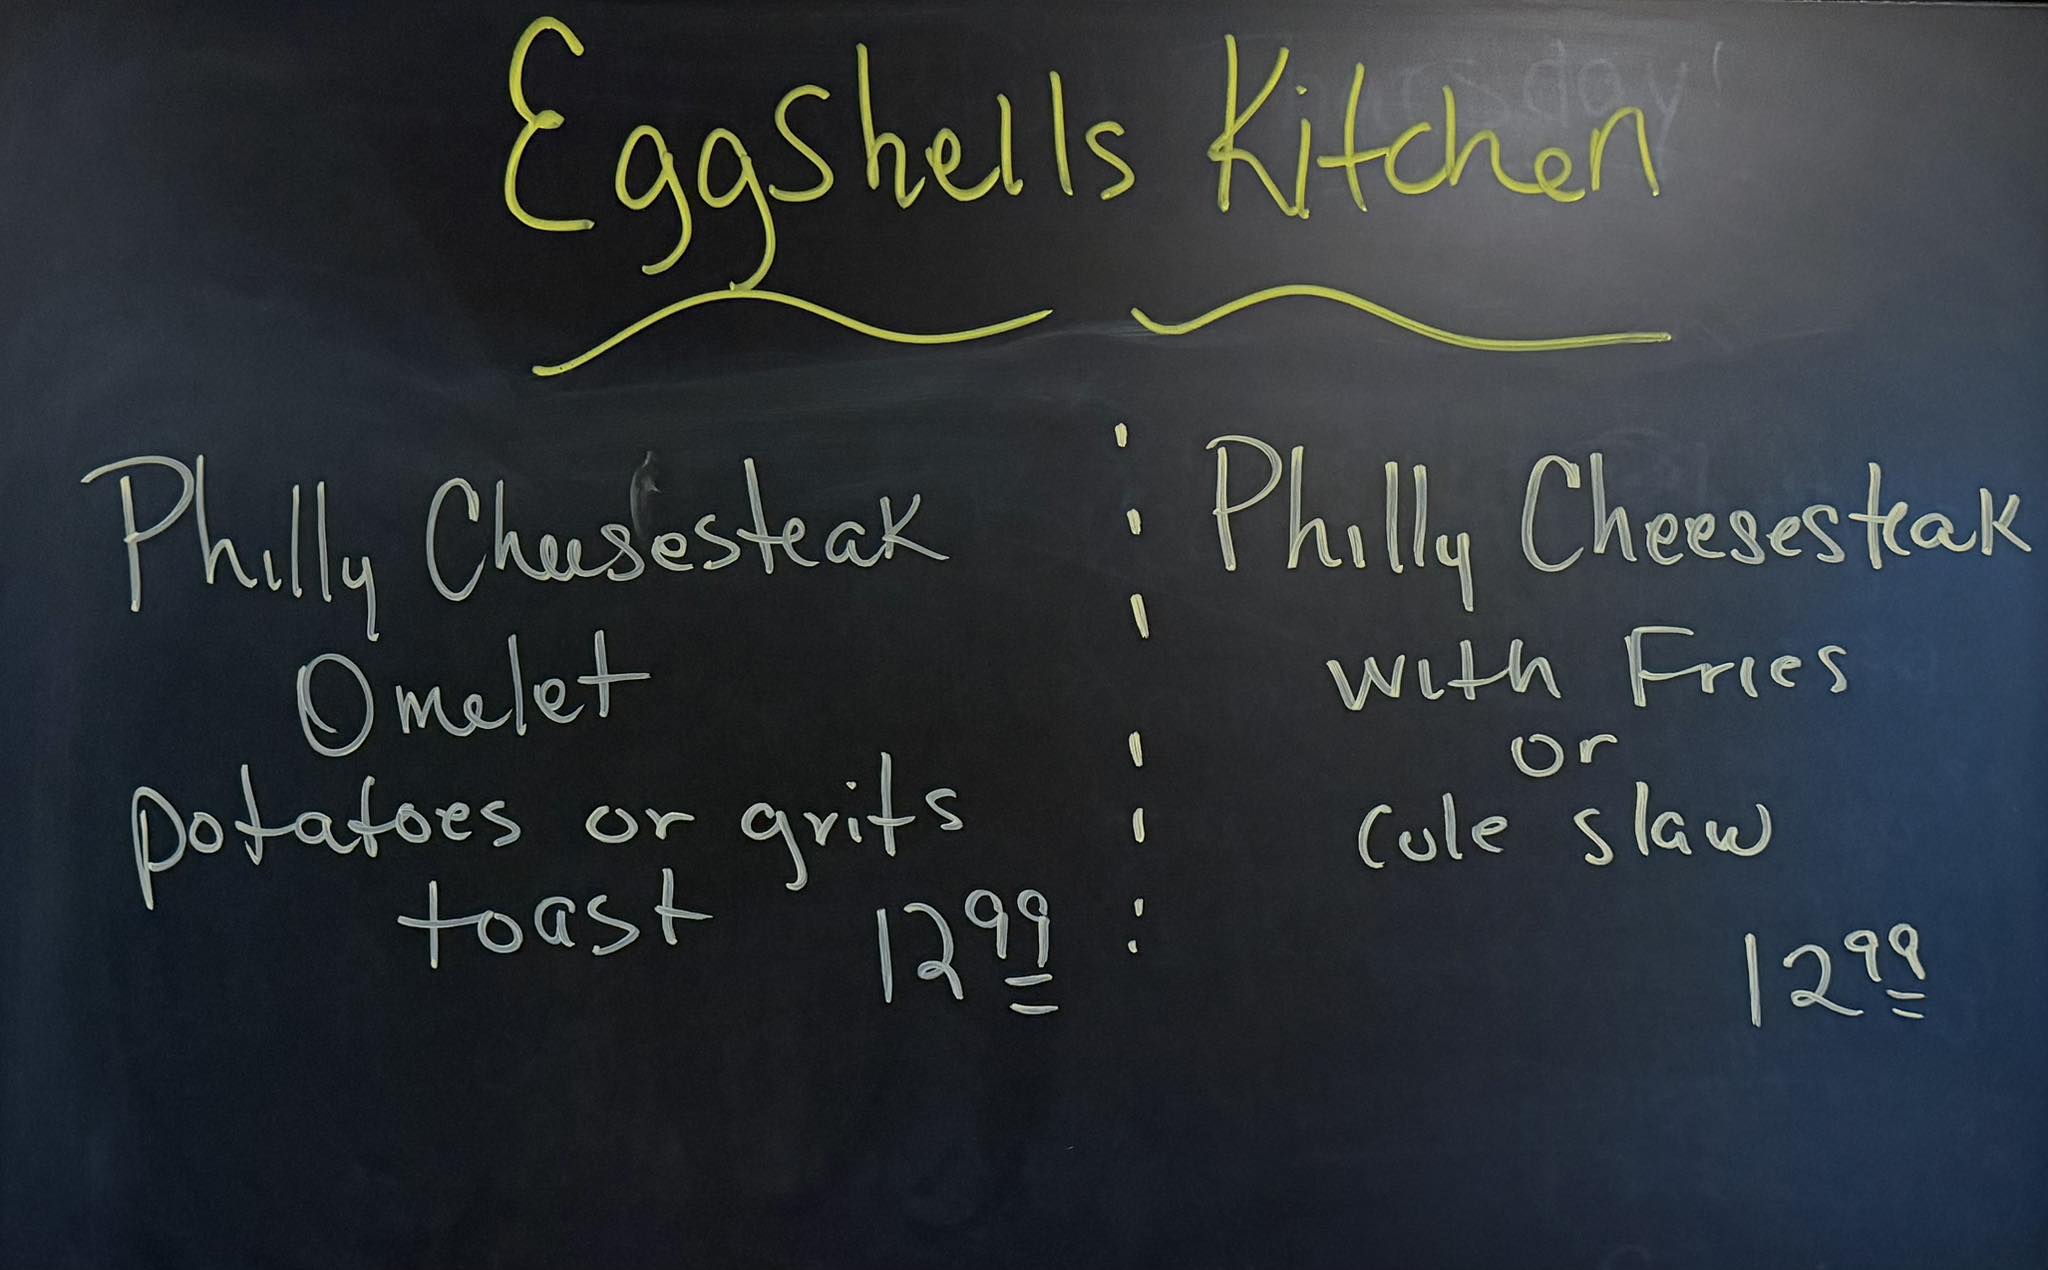 Eggshells Kitchen
Philly Cheesesteak
Omelet
potatoes or grits
toast 12.99
Philly Cheesesteak
with Fries
or
Cole slaw
12.99